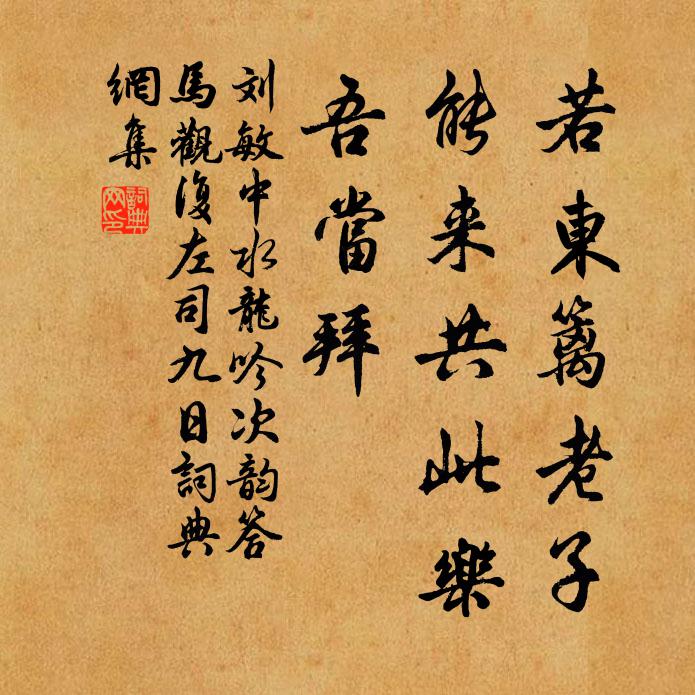 若東篱老子
能来共此樂
吾當拜
刘敏中水龍吟次韵答
馬觀復左司九日詞典
網集
詞典
网印